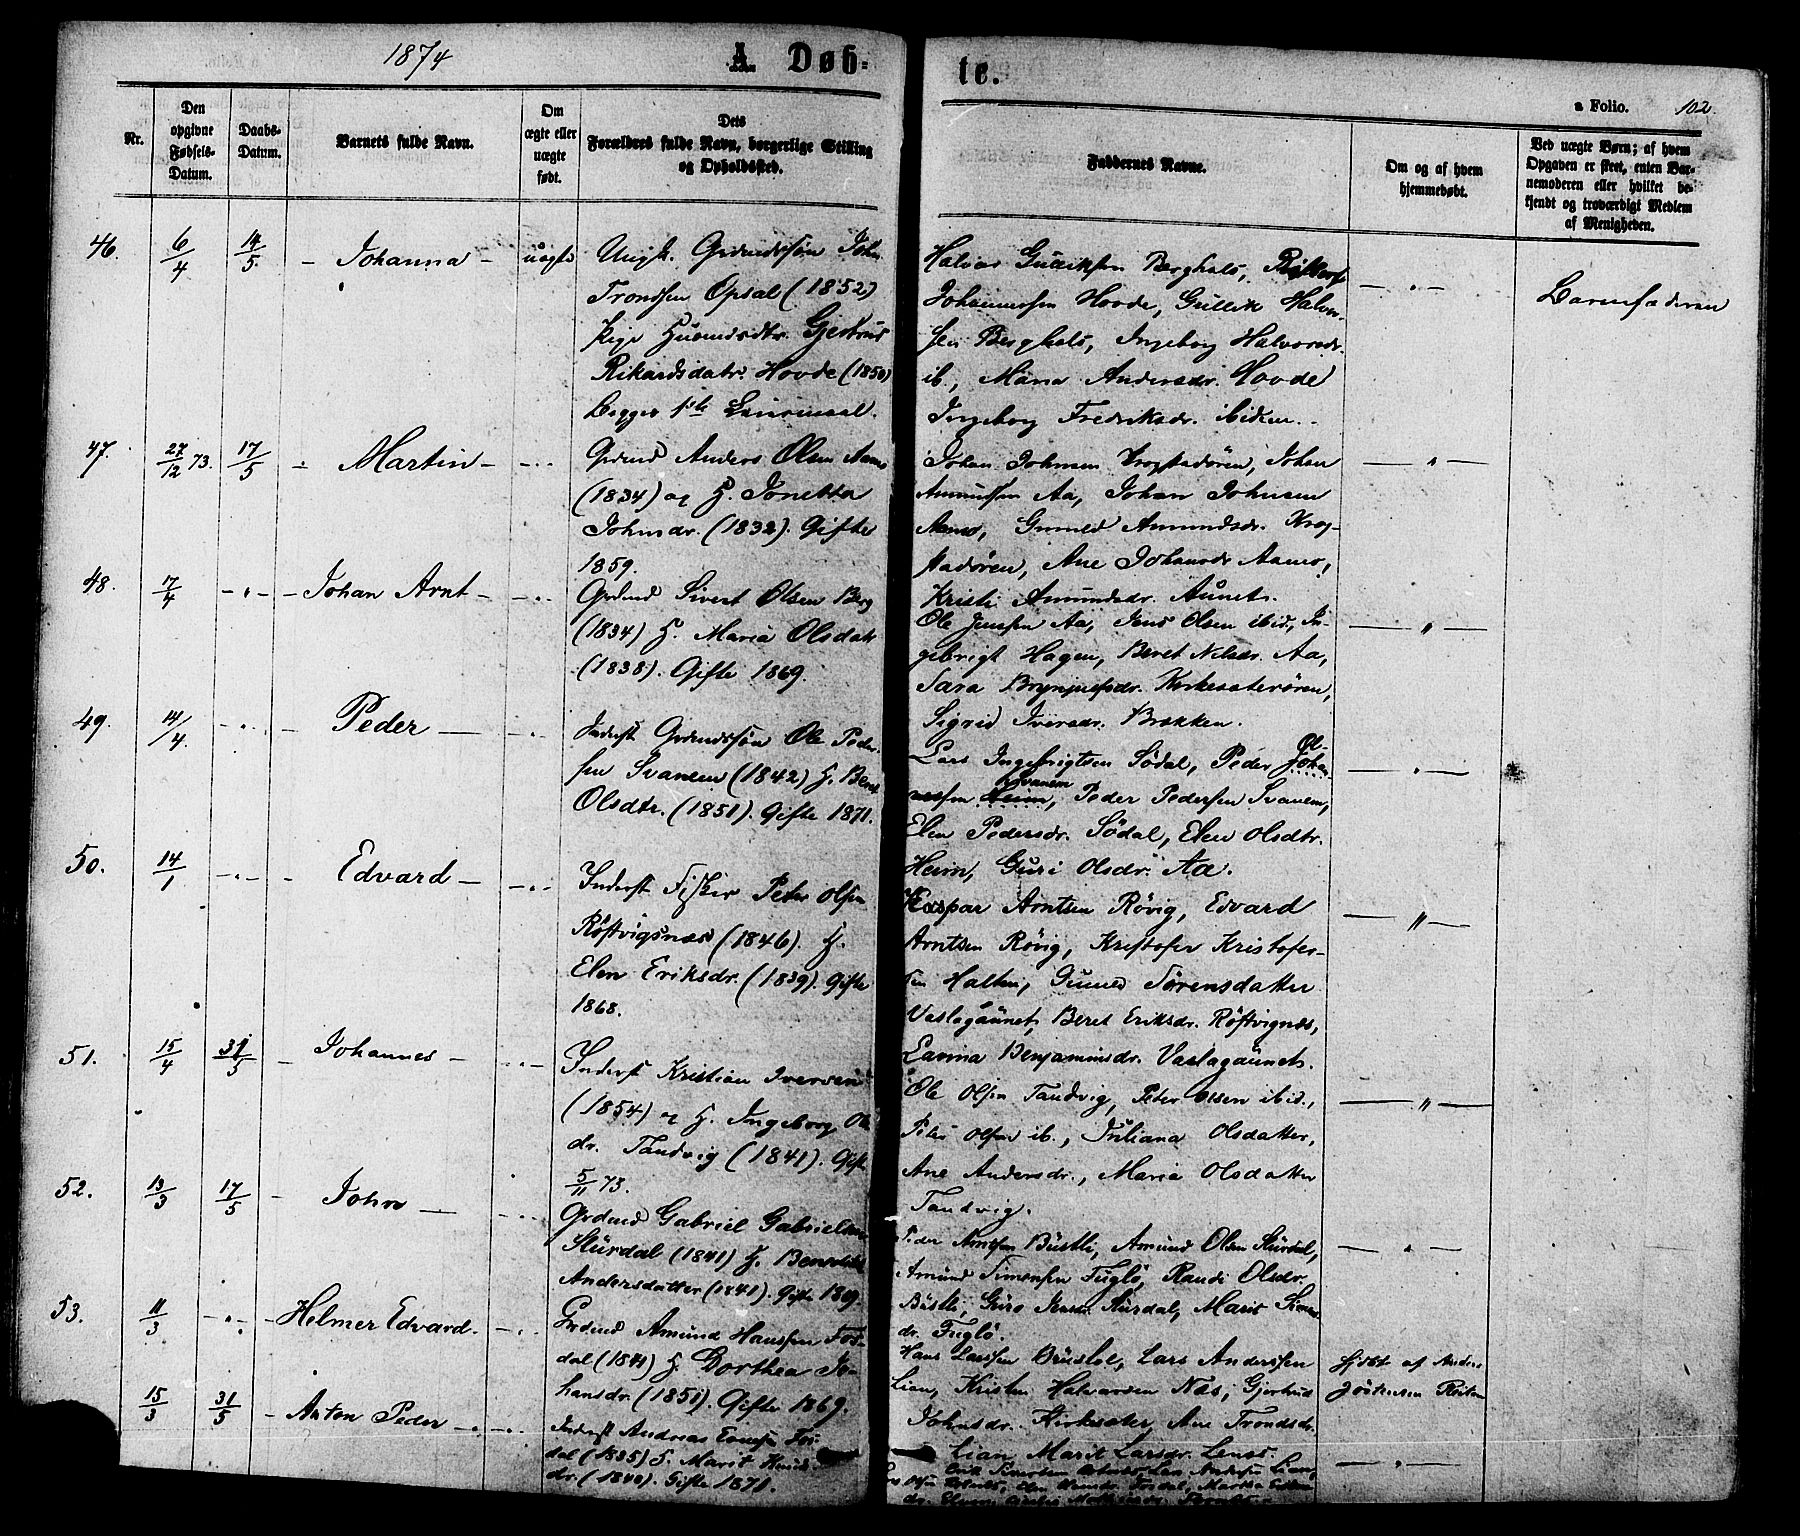 1874
A. Døb-
te.
a Folio. 102.
Nr.
Den opgivne Fødsels-Datum.
Daabs-Datum.
Barnets fulde Navn.
Om ægte eller uægte født.
Dets Forældres fulde Navn, borgerlige Stilling og Opholdssted.
Faddernes Navne.
Om og af hvem hjemmedøbt.
Ved uægte Børn; af hvem Opgaven er skeet, enten Barnemoderen eller hvilket bekjendt og troværdigt Medlem af Menigheden.
46. 6/4 14/5. - Johanna - uægte
Ungk. Grdmdssøn John
Trondsen Opsal (1852)
Pige Husmdsdtr. Gjertrud
Rikardsdatr. Hovde (1850)
Begges 1ste Leiermaal.
Halvor Gulliksen Berghals,
Johannessen Hovde, Gullik Halvor-
sen Berghals, Ingeborg Halvorsdr.
ib., Maria Andersdr. Hovde
Ingeborg Fredriksdr. ibidem.
Barnefaderen
47. 27/12 73. 17/5 - Martin -
Grdmd Anders Olsen Aamo
(1834) og H. Jonetta
Johnsdr. (1832). Gifte
1859.
Johan Johnsen Krogstadøren, Johan
Amundsen Aa, Johan Johnsen
Aamo, Gunild Amundsdr. Krog-
stadøren, Ane Johansdr Aamo,
Kristi Amundsdr. Aunet.
48. 17/4 - " - Johan Arnt -
Grdmd Sivert Olsen Berg
(1834) H. Maria Olsdatr
(1838). Gifte 1869.
Ole Jenssen Aa, Jens Olsen ibid., In-
gebrigt Hagen, Beret Nilsdr. Aa,
Sara Brynjulfsdr. Kirkesæterøren,
Sigrid Iversdr. Brækken.
49. 14/4. Peder -
Inderst Grdmdssøn Ole Peder-
sen Svanem (1842) H. Berit
Olsdtr. (1851). Gifte 1871.
Lars Ingebrigtsen Sødal, Peder Johan- Ol-
nessen Heim, Svanem Peder Pedersen Svanem,
Elen Pedersdr. Sødal, Elen Olsdtr.
Heim, Guri Olsdr. Aa.
50. 14/1 - " - Edvard -
Inderst Fisker Peter Olsen
Røstvigsnæs (1846). H.
Elen Eriksdr. (1839). Gifte
1868.
Kaspar Arntsen Røvig, Edvard
Arntsen Røvig, Kristofer Kristofer-
sen Halten, Gunild Sørensdatter
Vaslagaunet, Beret Eriksdr. Røstvignæs,
Benjaminsdr. Vaslagaunet.
51. 15/4 31/5 - Johannes -
Inderst Kristian Iversen
(1854) og H. Ingeborg Ols-
dr. Tandvig (1841). Gifte
5/11 73.
Ole Olsen Tandvig, Peter Olsen ibid.,
Peter Olsen ib., Juliana Olsdatter,
Ane Andersdr., Maria Olsdatter
Tandvig.
52. 13/3 17/5 - John -
Grdmd Gabriel Gabrielsen
Sturdal (1841) H. Benedikte
Andersdatter (1841). Gifte 1869.
Peder Arntsen Bustli, Amund Olsen Sturdal,
Amund Simensen Fuglø, Randi Olsdr.
Bustli, Guro Sturdal, Marit Simens-
dr. Fuglø.
53. 11/3 - " - Helmer Edvard -
Grdmd Amund Hanssen Fos-
dal (1841) H. Dorthea Jo-
hansdr. (1851). Gifte 1869.
Hans Larssen Lars Anderssen
Lian, Kristen Halvorsen Næs, Gjertrud
Johnsdr. Kirksæter, Ane Trondsdr.
Lian, Marit Larsdr.
hjdbt af Anders
15/3 31/5 - Anton Peder -
Inderst Andreas Fos-
dal (1835) H. Marit Knuds-
dr. (1840). Gifte 1871.